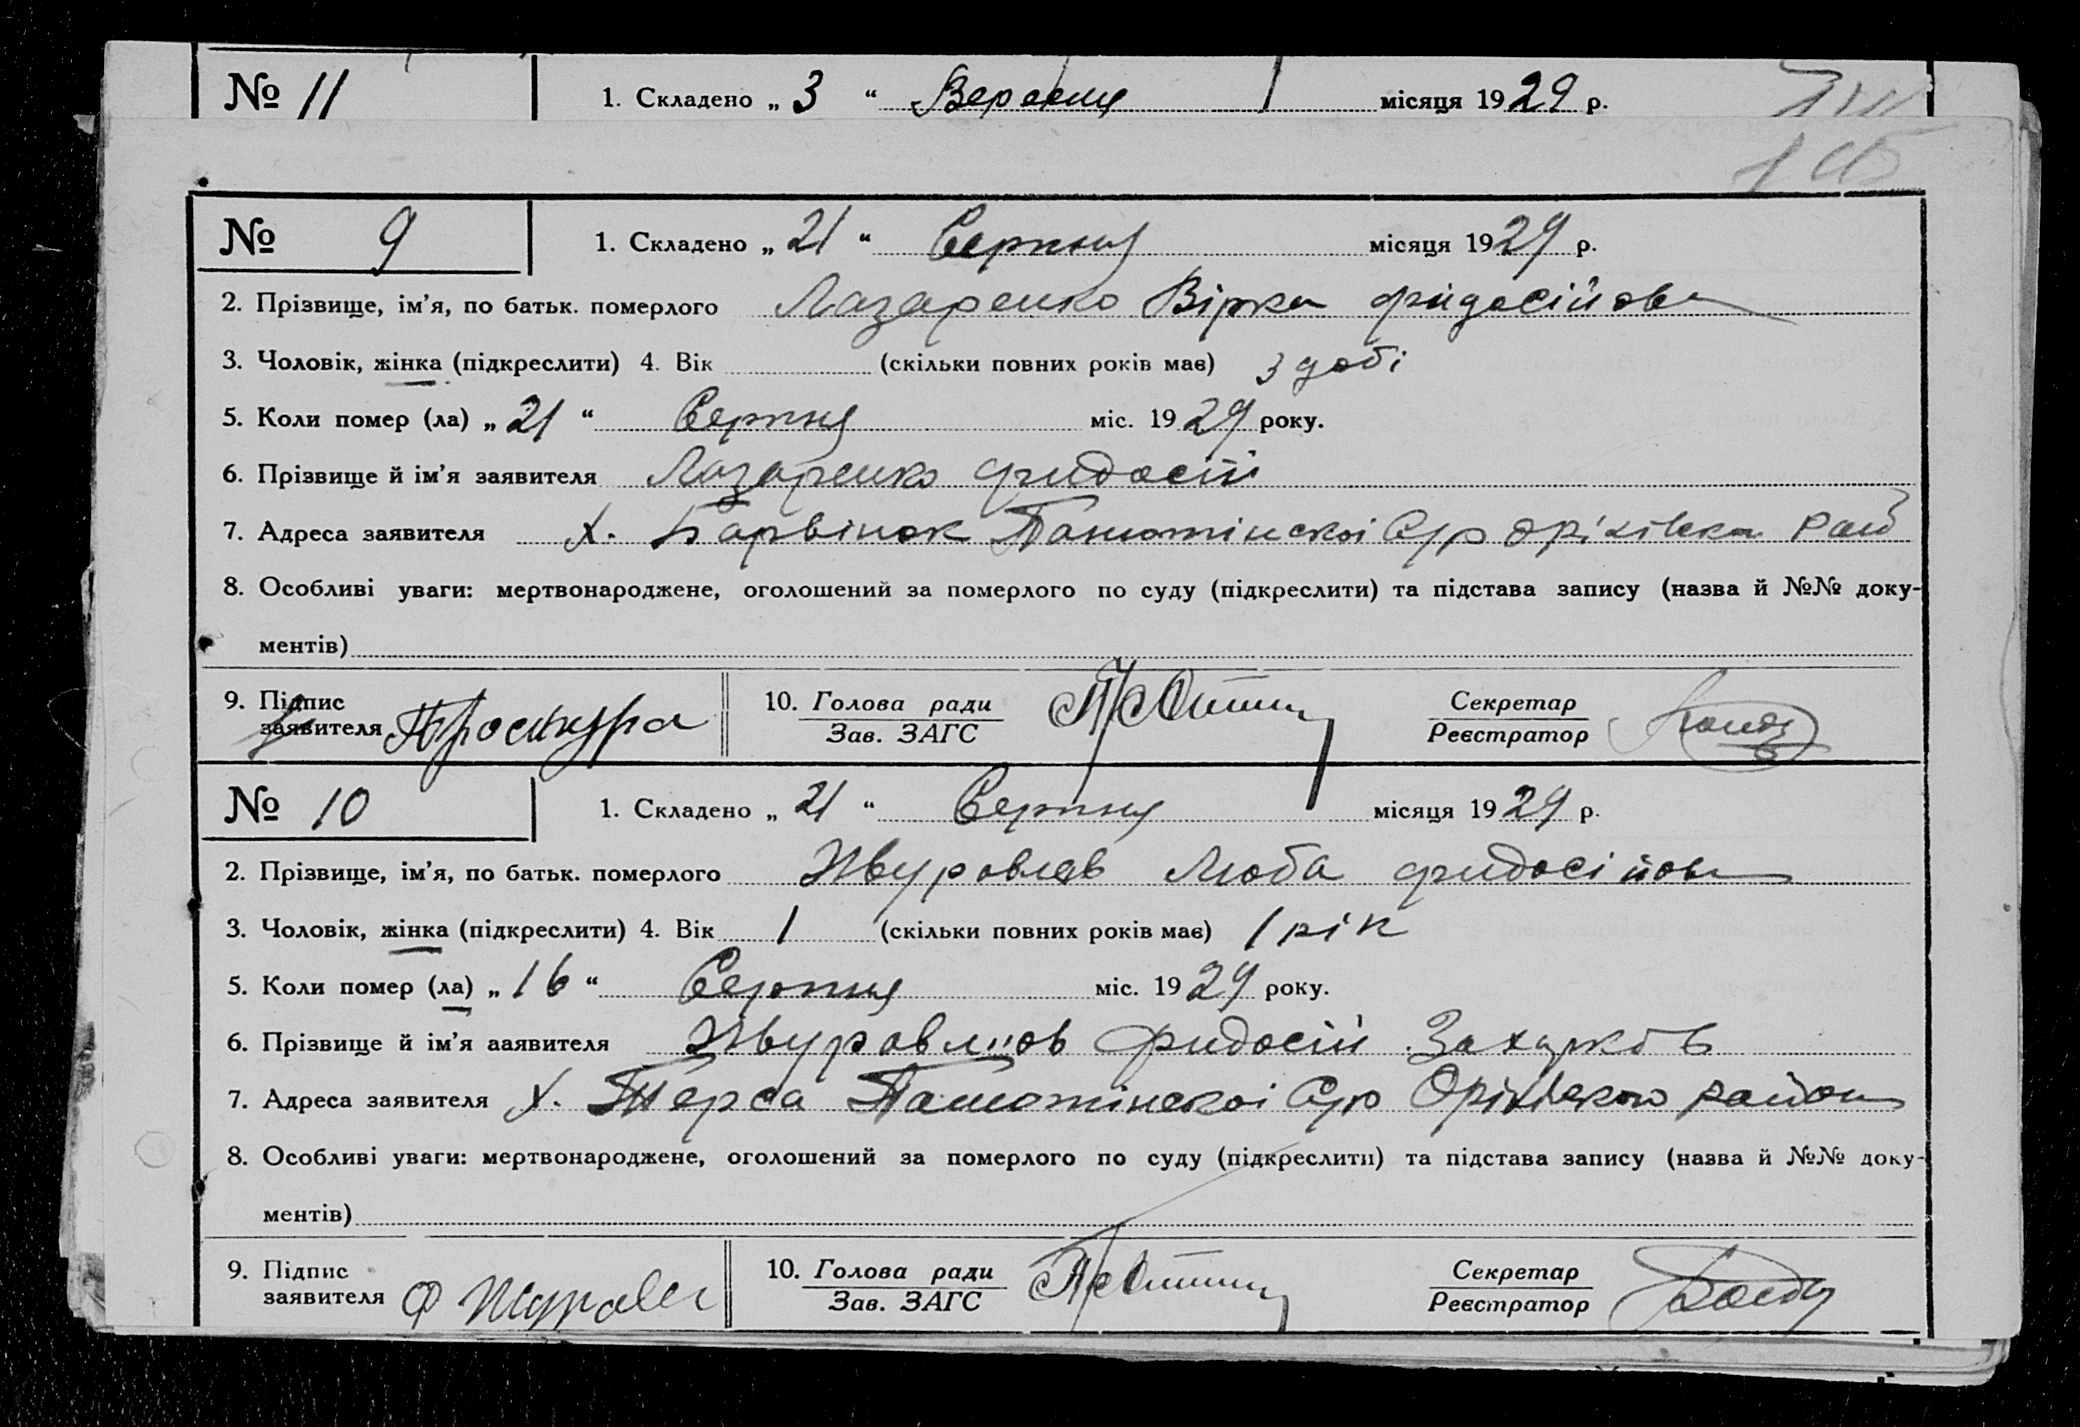 № 11 1. Складено „ 3 “ Вересня місяця 1929 р.
№ 9 1. Складено „ 21 “ Серпня місяця 1929 р.
2. Прізвище, ім’я, по батьк. померлого Лазаренко Вірка Фидосійовн
3. Чоловік, жінка (підкреслити) 4. Вік (скільки повних років має) 3 добі
5. Коли помер (ла) „ 21 “ Серпня міс. 1929 року.
6. Прізвище й ім’я заявителя Лазаренко Фидосій
7. Адреса заявителя х. Барвінок Панютінскоі С/р Оріхівска рай
8. Особливі уваги: мертвонароджене, оголошений за померлого по суду (підкреслити) та підстава запису (назва й №№ доку-
ментів)
9. Підпис заявителя Проскура 10. Голова ради Зав. ЗАГС Секретар Реєстратор
№ 10 1. Складено „ 21 “ Серпня місяця 1929 р.
2. Прізвище, ім’я, по батьк. померлого Люба Фидосійовн
3. Чоловік, жінка (підкреслити) 4. Вік 1 (скільки повних років має) 1 рік
5. Коли помер (ла) „ 16 “ Серпня міс. 1929 року.
6. Прізвище й ім’яааявителя Фидосій
7. Адреса заявителя х. Терса Панютінскоі С/р Оріхівского район
8. Особливі уваги: мертвонароджене, оголошений за померлого по суду (підкреслити) та підстава запису (назва й №№ доку-
ментів)
9. Підпис заявителя Ф Журавл 10. Голова ради Зав. ЗАГС Секретар Реєстратор